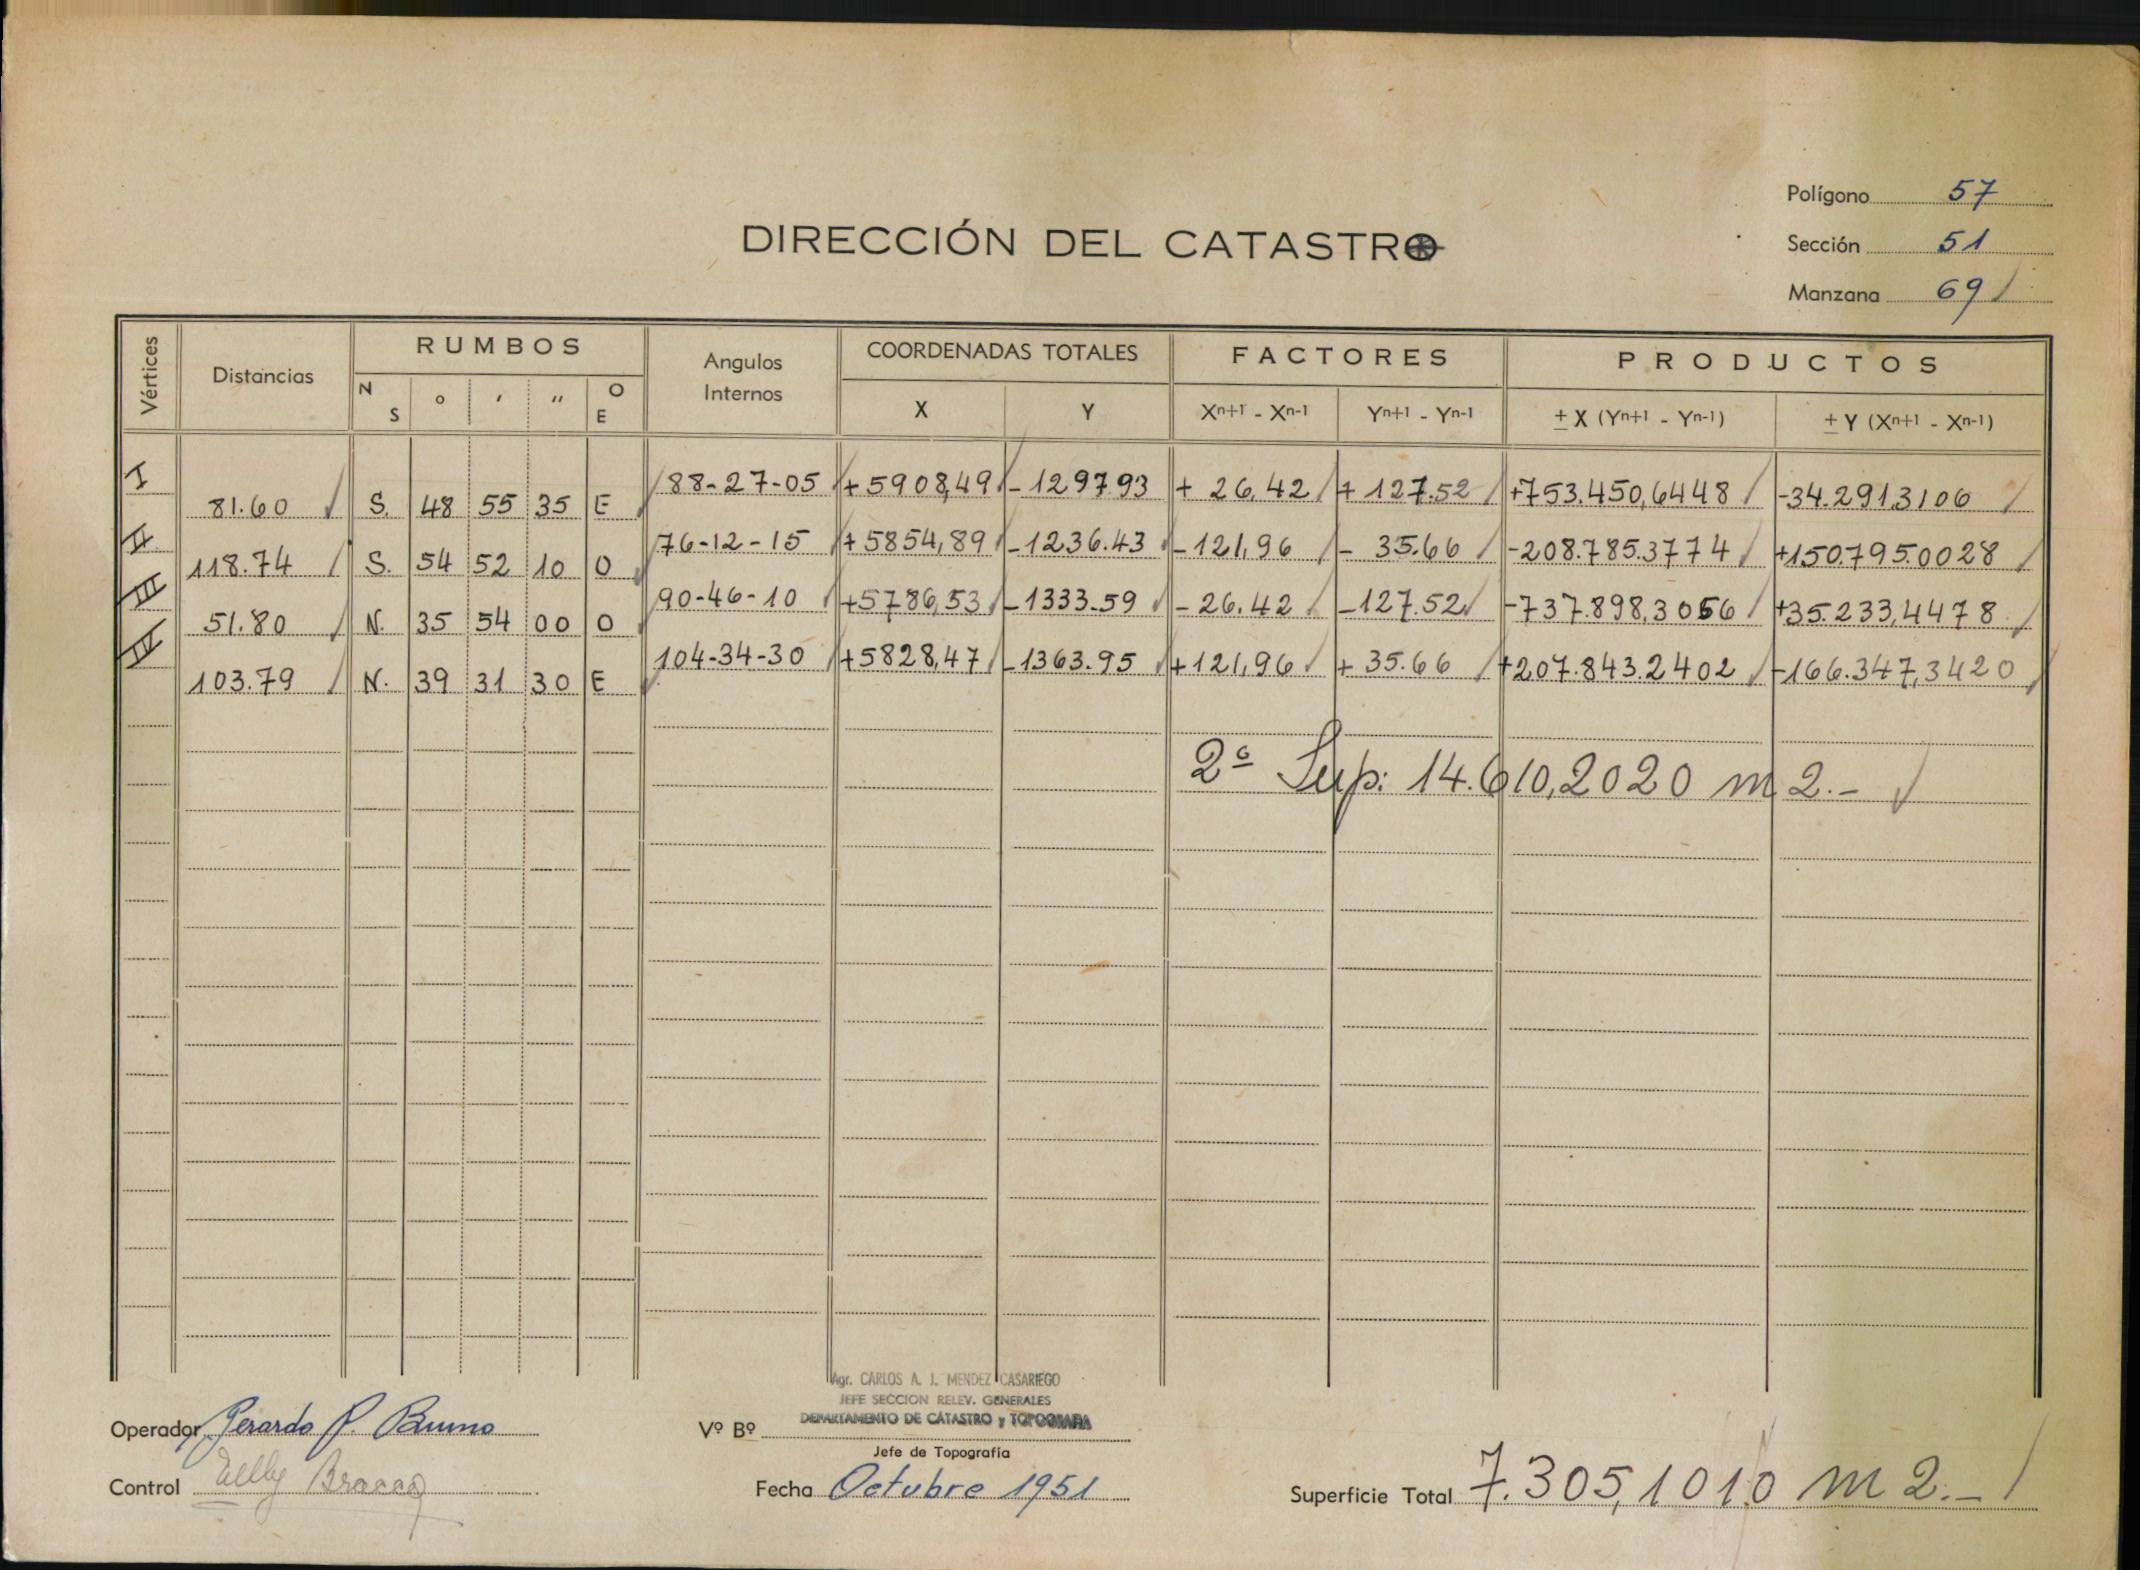 Polígono 57
DIRECCIÓN DEL CATASTRO
Sección 51
Manzana 69
Vértices Distancias RUMBOS Angulos Internos COORDENADAS TOTALES FACTORES PRODUCTOS
N S ° ′ ″ O E X Y Xn+1 - Xn-1 Yn+1 - Yn-1 ± X (Yn+1 - Yn-1) ± Y (Xn+1 - Xn-1)
I 81.60 S. 48 55 35 E 88-27-05 +5908,49 -1297.93 + 26,42 + 127.52 +753.450,6448 -34.291,3106
II 118.74 S. 54 52 10 O 76-12-15 +5854,89 -1236.43 -121,96 - 35.66 -208.785.3774 +150.795.0028
III 51.80 N. 35 54 00 O 90-46-10 +5786,53 -1333.59 -26.42 -127.52 -737.898,3056 +35.233,4478
IV 103.79 N. 39 31 30 E 104-34-30 +5828,47 -1363.95 +121,96 + 35.66 +207.843.2402 -166.347,3420
2ª Sup: 14.610,2020 m2.-
Agr. CARLOS A. J. MENDEZ CASARIEGO
JEFE SECCION RELEV. GENERALES
DEPARTAMENTO DE CATASTRO y TOPOGRAFIA
Operador Gerardo P. Bruno
Vº Bº
Jefe de Topografía
Control Elly Bracco
Fecha Octubre 1951
Superficie Total 7.305,1010 m2.-